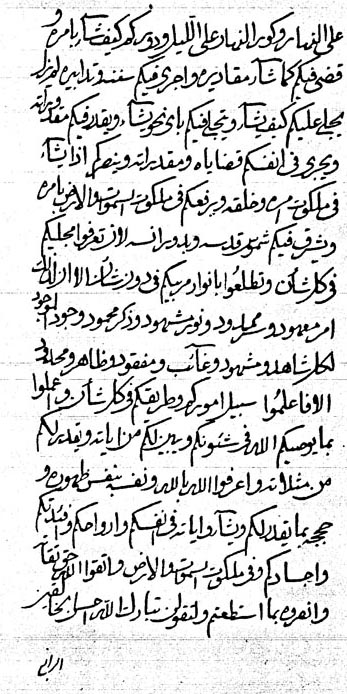 على النهار وكور النهار على الليل ودوركم كيف شاء بامره و
قضى فيكم كما شاء مقاديره واجرى فيكم سننه وتدابيره لم يزل
يجلي عليكم كيف شاء ويتجلى فيكم باي نحو شاء ويقدر فيكم مقدراته
ويجري في انفسكم قضاياه ومقدراته وينصركم اذا يشاء
في ملكوت امره وخلقه ويرفعكم في ملكوت السموات والارض بامره
ويشرق فيكم شموس قدسه وبدور انسه لان تعرفوا مجليكم
في كل شان وتطلعوا بانوار مربيكم في دون شان الا ان ذلك
امر معهود وسر ممدود ونور مشهود وذكر محمود وجود موجود
لكل شاهد ومشهود وغائب ومفقود وظاهر ومحدود
الا فاعلموا سبيل اموركم وطريقكم في كل شان واعملوا
بما يوصيكم الله في شئونكم ويبين لكم من اياته ويقدر لكم
من مثلاته واعرفوا الله بالله ونفسه بنفس ظهوره و
حججه بما يقدر لكم وشاء واياته في انفسكم وارواحكم وافئدتكم
واجسادكم وفي ملكوت السموات والارض واتقوا الله حق تقاته
وانصروه بما استطعتم ولتقولن تبارك الله احسن الخالقين